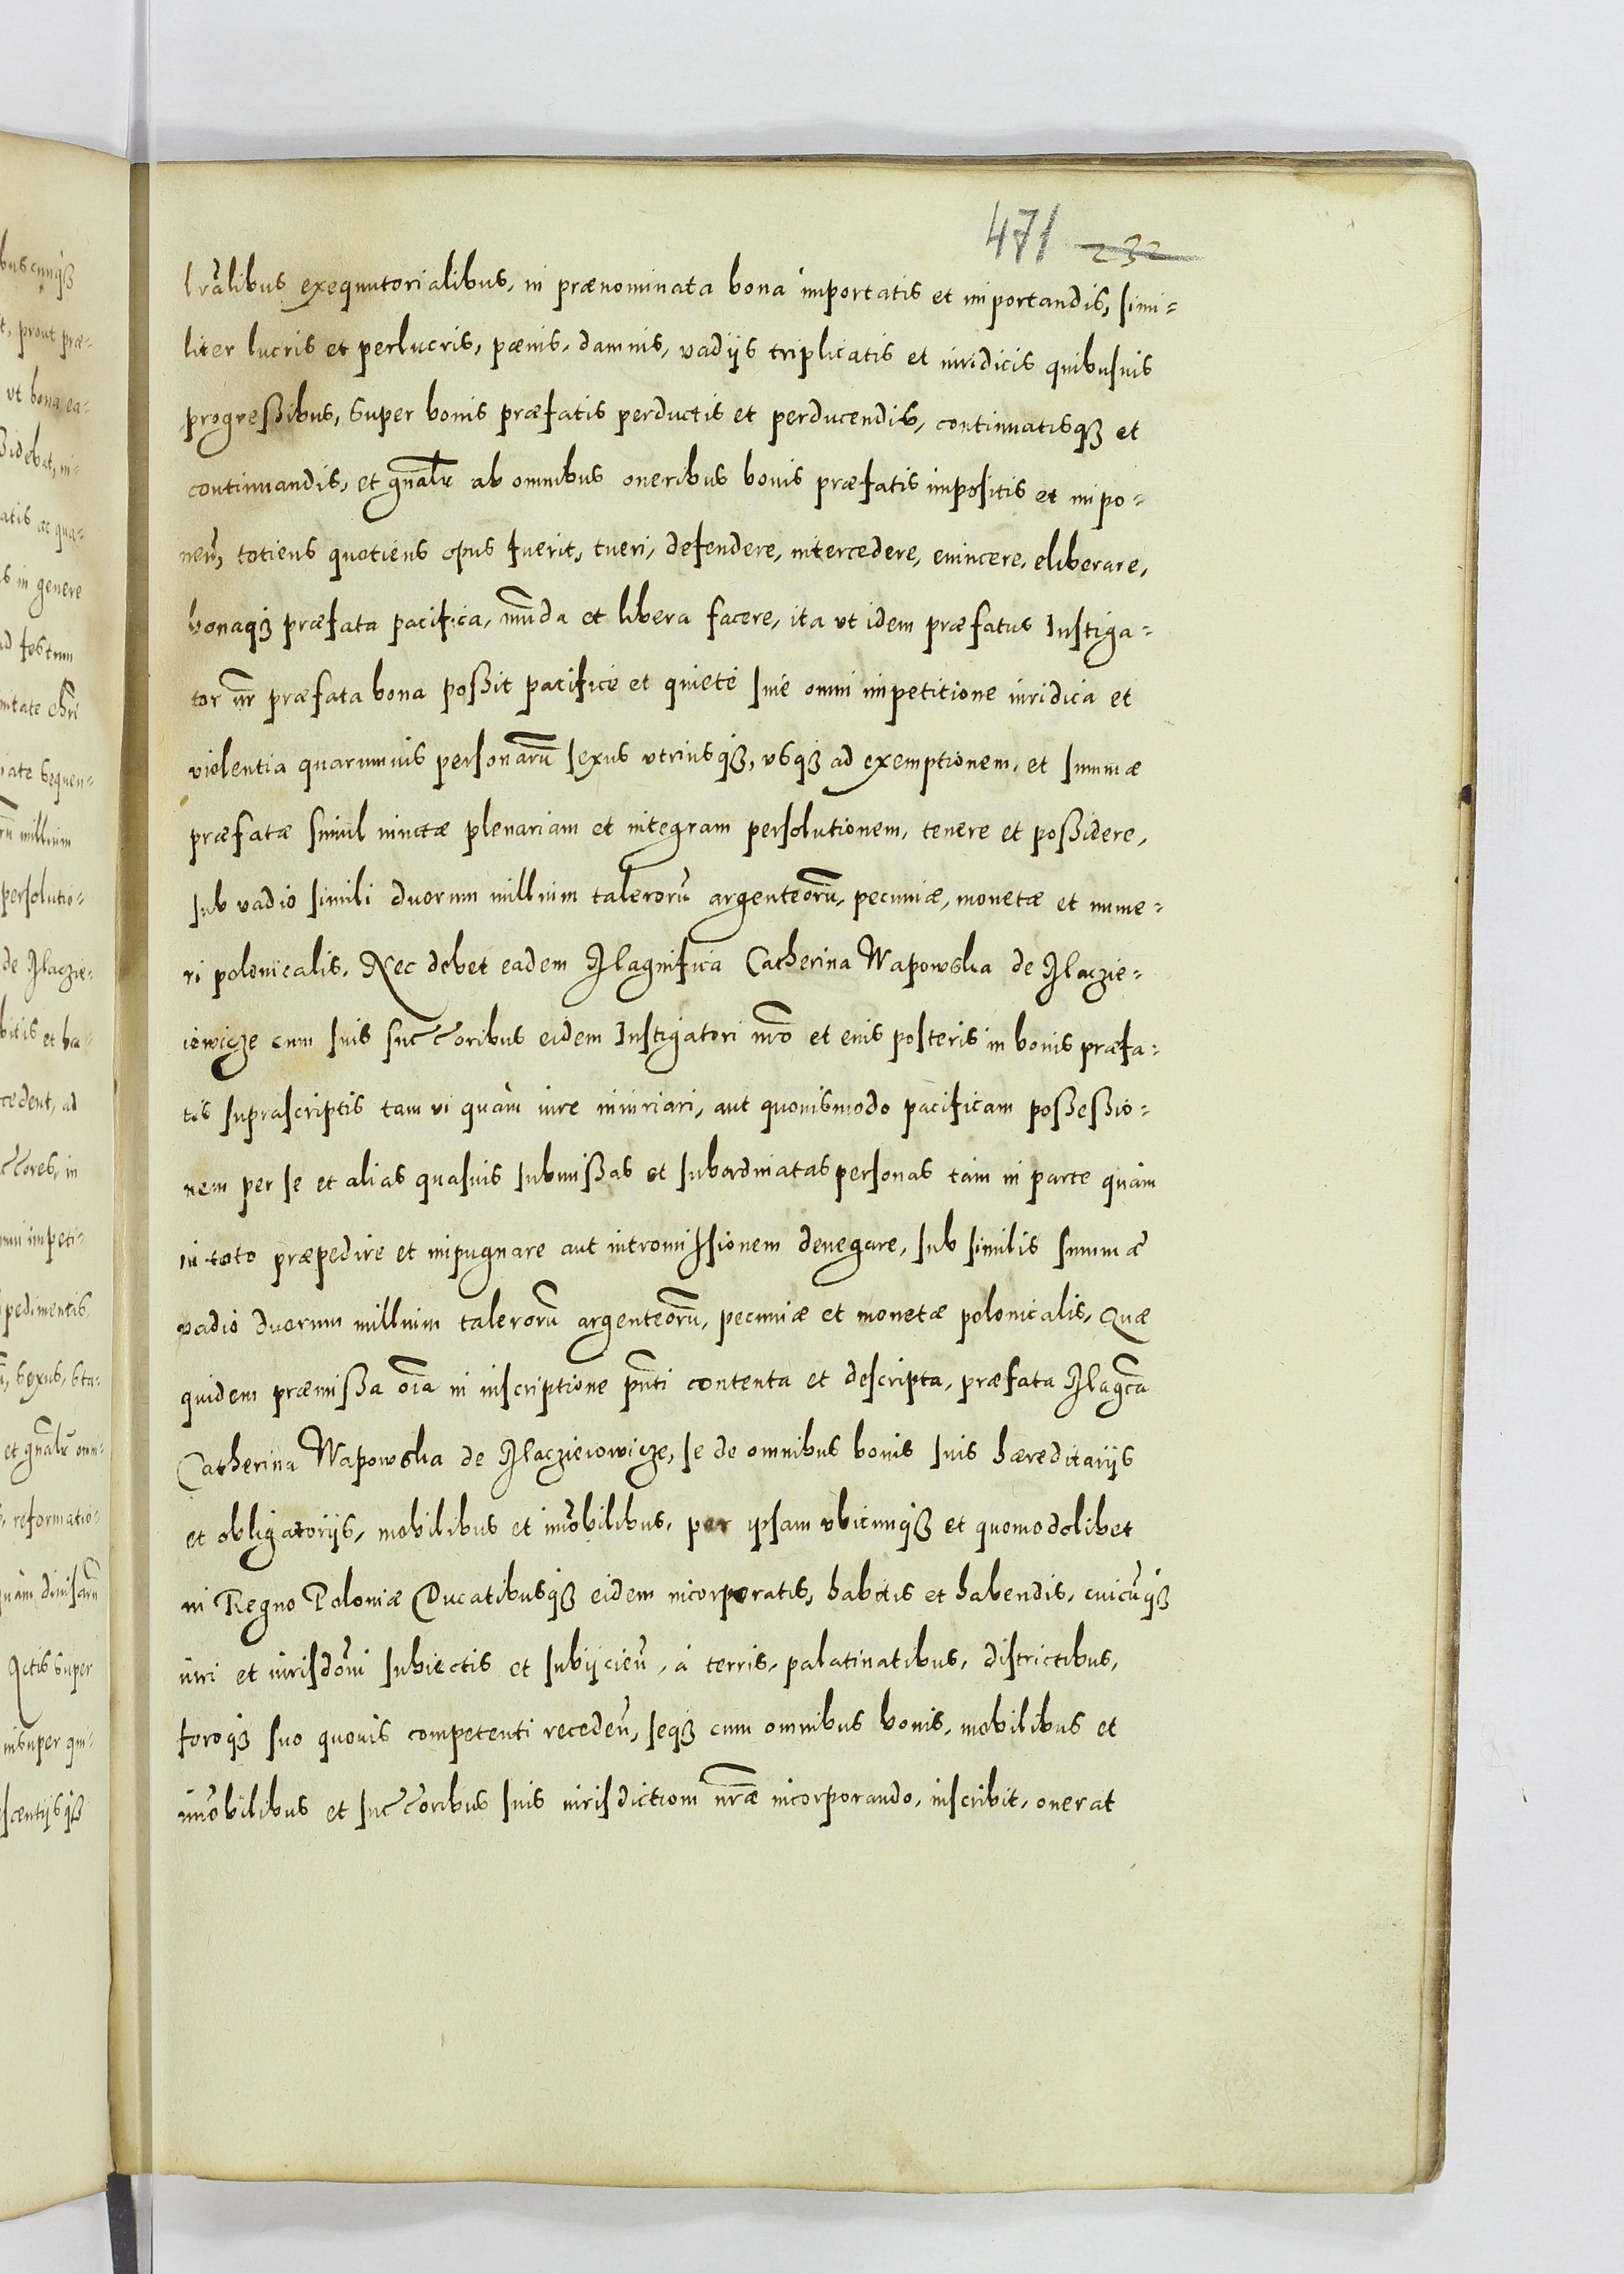 471 232
lr̃alibus exequutorialibus, in prænominata bona importatis et importandis, simi-
liter lucris et perlucris, pænis, damnis, vadijs triplicatis et iuridicis quibusuis
progreßibus, super bonis præfatis perductis et perducendis, continuatisqꝫ et
continuandis, et gn̄alr ab omnibus oneribus bonis præfatis impositis et impo-
neñ, totiens quotiens opus fuerit, tueri, defendere, intercedere, euincere, eliberare,
bonaqꝫ præfata pacifica, mūda et libera facere, ita vt idem præfatus Instiga-
tor nr̄ præfata bona poßit pacificè et quietè sine omni impetitione iuridica et
violentia quarumuis personarū sexus vtriusqꝫ, vsqꝫ ad exemptionem, et summæ
præfatæ simul iunctæ plenariam et integram persolutionem, tenere et poßidere,
sub vadio simili duorum millium talerorū argenteorū, pecuniæ, monetæ et nume-
ri polonicalis. Nec debet eadem Magnifica Catherina Wapowska de Maczie-
iowicze cum suis succoribus eidem Instigatori nr̄o et eius posteris in bonis præfa-
tis suprascriptis tam vi quàm iure iniuriari, aut quouismodo pacificam poßeßio-
nem per se et alias quasuis submißas et subordinatas personas tàm in parte quàm
in toto præpedire et impugnare aut intromissionem denegare, sub similis summæ
vadio duorum millium talerorū argenteorū, pecuniæ et monetæ polonicalis, Quæ
quidem præmißa oīa in inscriptione pn̄ti contenta et descripta, præfata Magc̄a
Catherina Wapowska de Maczieiowicze, se de omnibus bonis suis hæreditarijs
et obligatorijs, mobilibus et im̃obilibus, per ipsam vbicunqꝫ et quomodolibet
in Regno Poloniæ Ducatibusqꝫ eidem incorporatis, habitis et habendis, cuicūqꝫ
iuri et iurisdōni subiectis et subijcieñ, à terris, palatinatibus, districtibus,
foroqꝫ suo quouis competenti recedeñ, seqꝫ cum omnibus bonis, mobilibus et
im̃obilibus et succoribus suis iurisdictioni nr̄æ incorporando, inscribit, onerat